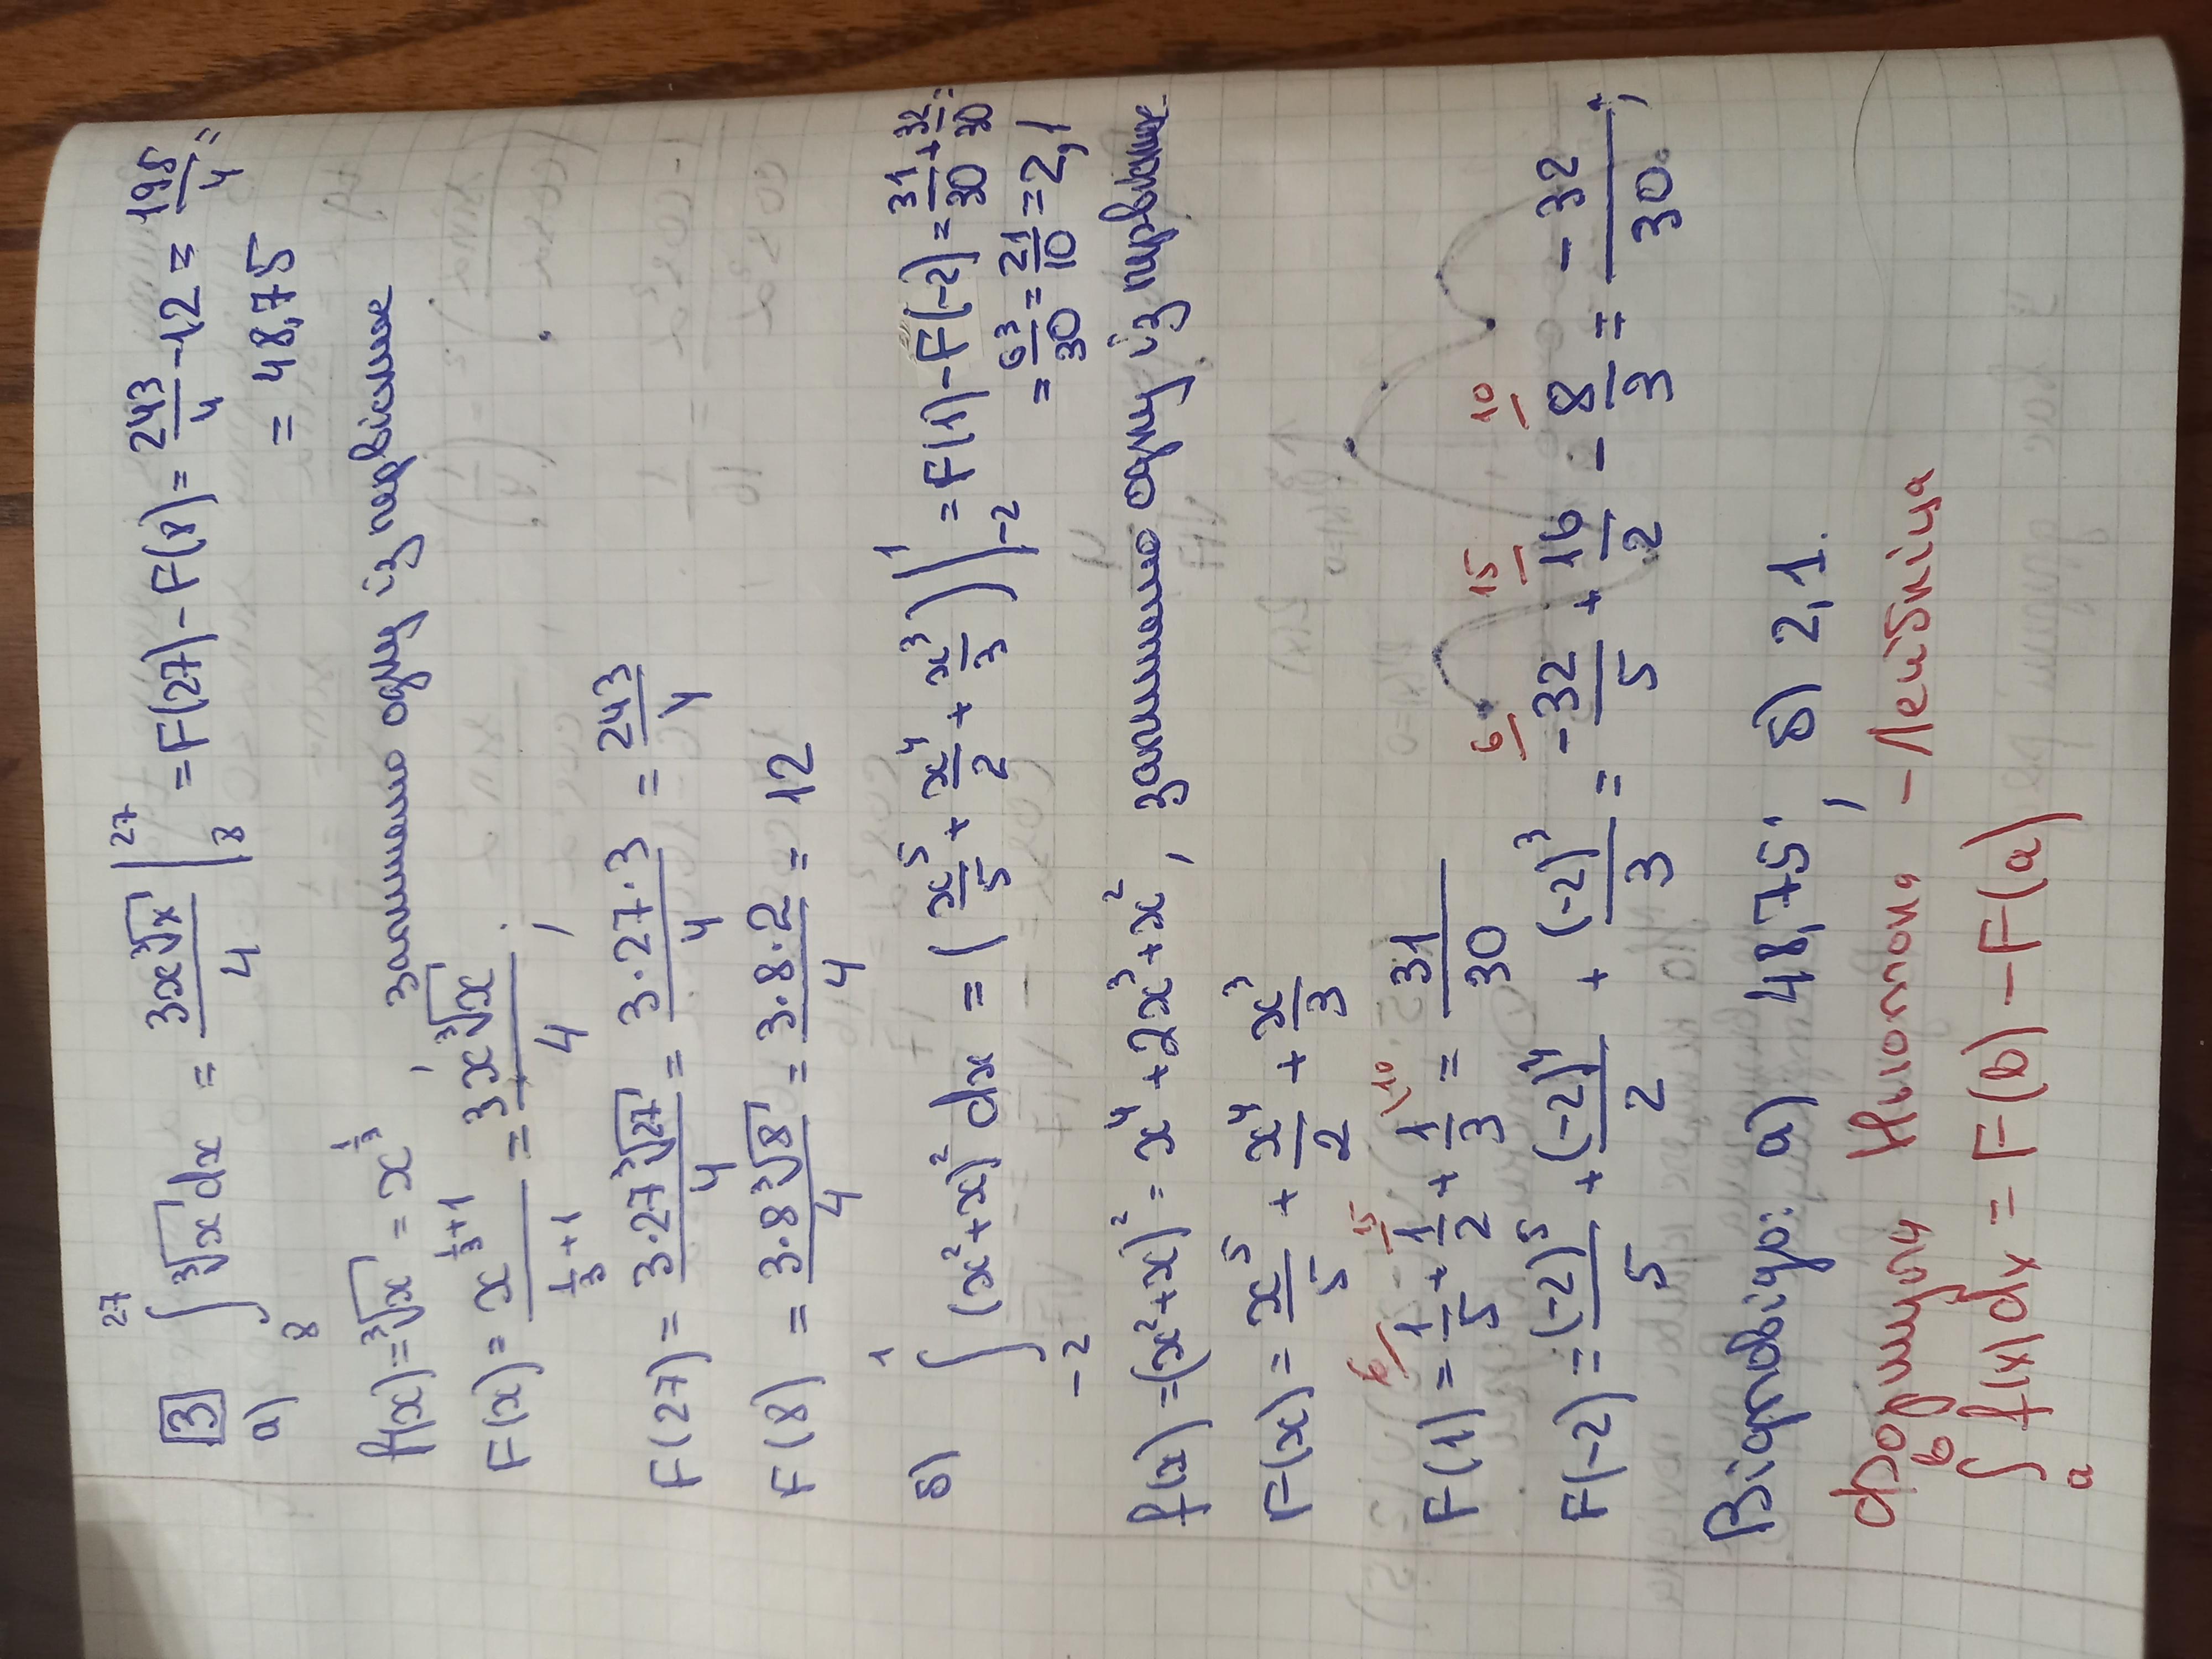 3
а) ∫₈²⁷ ∛x dx = 3x∛x/4 |₈²⁷ = F(27) - F(8) = 243/4 - 12 = 195/4 =
= 48,75
f(x) = ∛x = x^(1/3), запишемо одну із первісних
F(x) = x^(1/3+1)/(1/3+1) = 3x∛x/4;
F(27) = 3·27∛27/4 = 3·27·3/4 = 243/4
F(8) = 3·8∛8/4 = 3·8·2/4 = 12
б) ∫₋₂¹ (x²+x)² dx = (x⁵/5 + x⁴/2 + x³/3) |₋₂¹ = F(1) - F(-2) = 31/30 + 32/30 =
= 63/30 = 21/10 = 2,1
f(x) = (x²+x)² = x⁴ + 2x³ + x², запишемо одну із первісних
F(x) = x⁵/5 + x⁴/2 + x³/3
6 15 10
F(1) = 1/5 + 1/2 + 1/3 = 31/30
6 15 10
F(-2) = (-2)⁵/5 + (-2)⁴/2 + (-2)³/3 = -32/5 + 16/2 - 8/3 = -32/30;
Відповідь: а) 48,75; б) 2,1.
формула Ньютона - Лейбніца
∫ₐᵇ f(x) dx = F(b) - F(a)